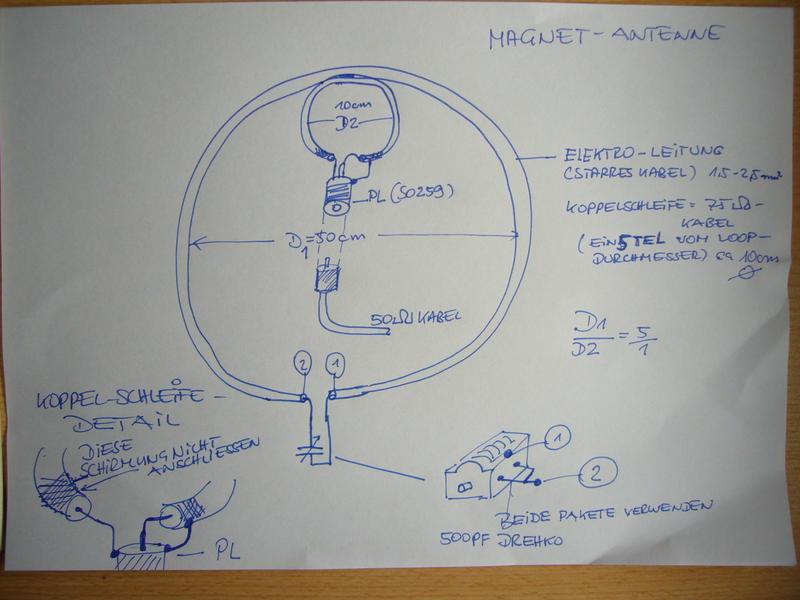 MAGNET-ANTENNE
10cm
D2
PL (SO259)
D1=50cm
50Ω KABEL
ELEKTRO-LEITUNG
(STARRES KABEL) 1,5-2,5mm²
KOPPELSCHLEIFE = 75Ω-
KABEL
(EIN 5TEL VOM LOOP-
DURCHMESSER) ca 10cm
Ø
D1
D2
= 5
1
2
1
KOPPEL-SCHLEIFE-
DETAIL
DIESE
SCHIRMUNG NICHT
ANSCHLIESSEN
PL
1
2
BEIDE PAKETE VERWENDEN
500PF DREHKO